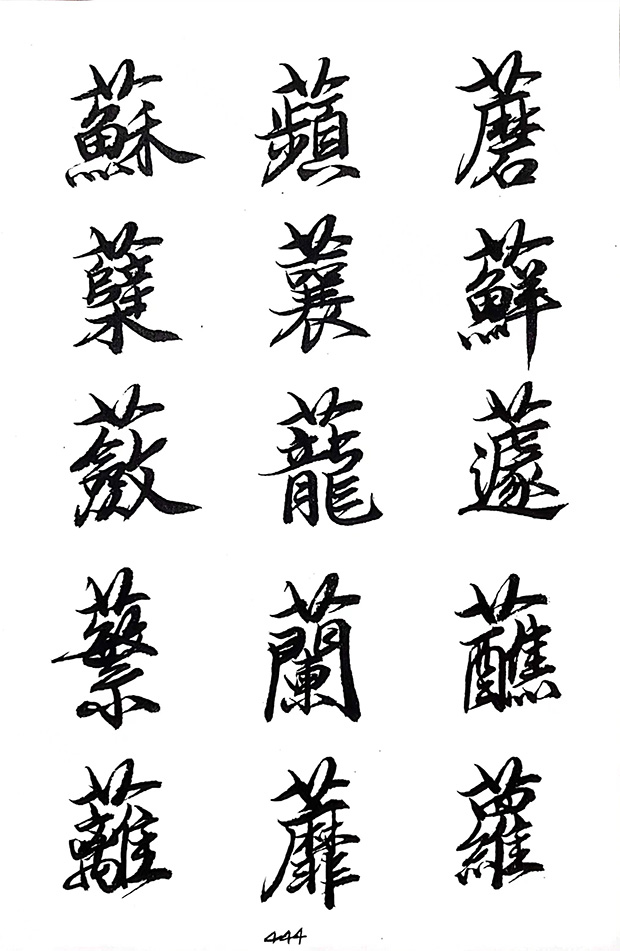 蘇 蘋 蘑
蘖 蘘 蘚
蘞 蘢 蘧
蘩 蘭 蘸
蘺 蘼 蘿
444